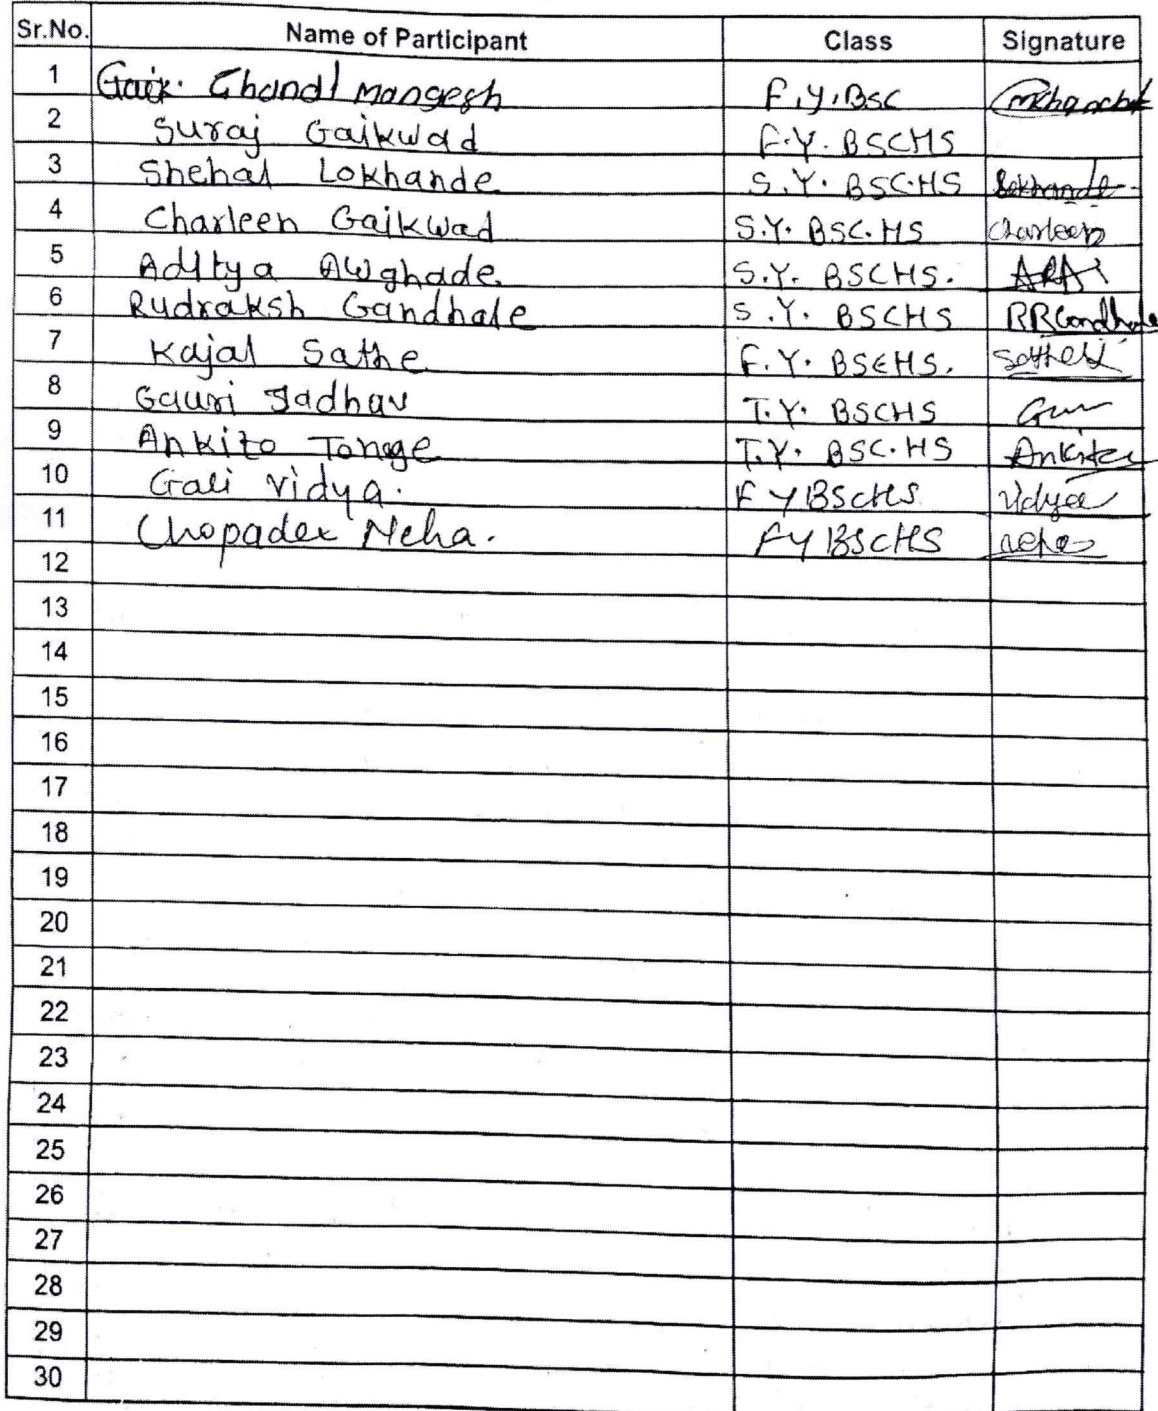 Sr.No. Name of Participant Class Signature
1 Chandl mangesh F.Y.BSC
2 Suraj Gaikwad F.Y. BSCHS
3 Snehal Lokhande S.Y. BSC.HS Lokhande
4 Charleen Gaikwad S.Y. BSC.HS Charleen
5 Aditya Awghade S.Y. BSCHS.
6 Rudraksh Gandhale S.Y. BSCHS RRGandhale
7 Kajal Sathe F.Y. BSCHS.
8 Gauri Jadhav T.Y. BSCHS
9 Ankita Tonge T.Y. BSC.HS Ankita
10 Gali vidya. F Y BScHS Vidya
11 Chopade Neha. FY BScHS neha
12
13
14
15
16
17
18
19
20
21
22
23
24
25
26
27
28
29
30